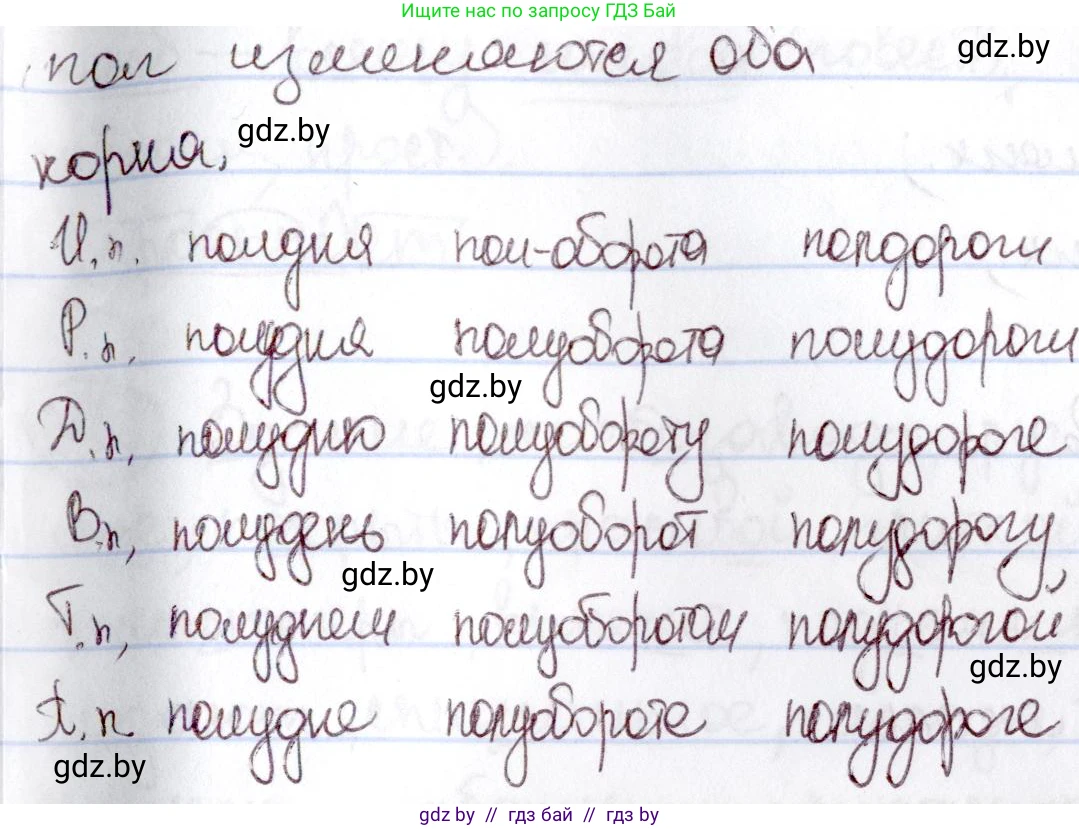 Ищите нас по запросу ГДЗ Бай
пол изменяются оба
gdz.by
корня,
gdz.by
И.п. полдня пол-оборота полдороги
Р.п, полудня полуоборота полудороги
gdz.by
Д.п, полудню полуобороту полудороге
В.п, полудень полуоборот полудорогу,
gdz.by
Т.п, полуднем полуоборотом полудорогой
gdz.by
П.п полудне полуобороте полудороге
gdz.by
gdz by // гдз бай // gdz by